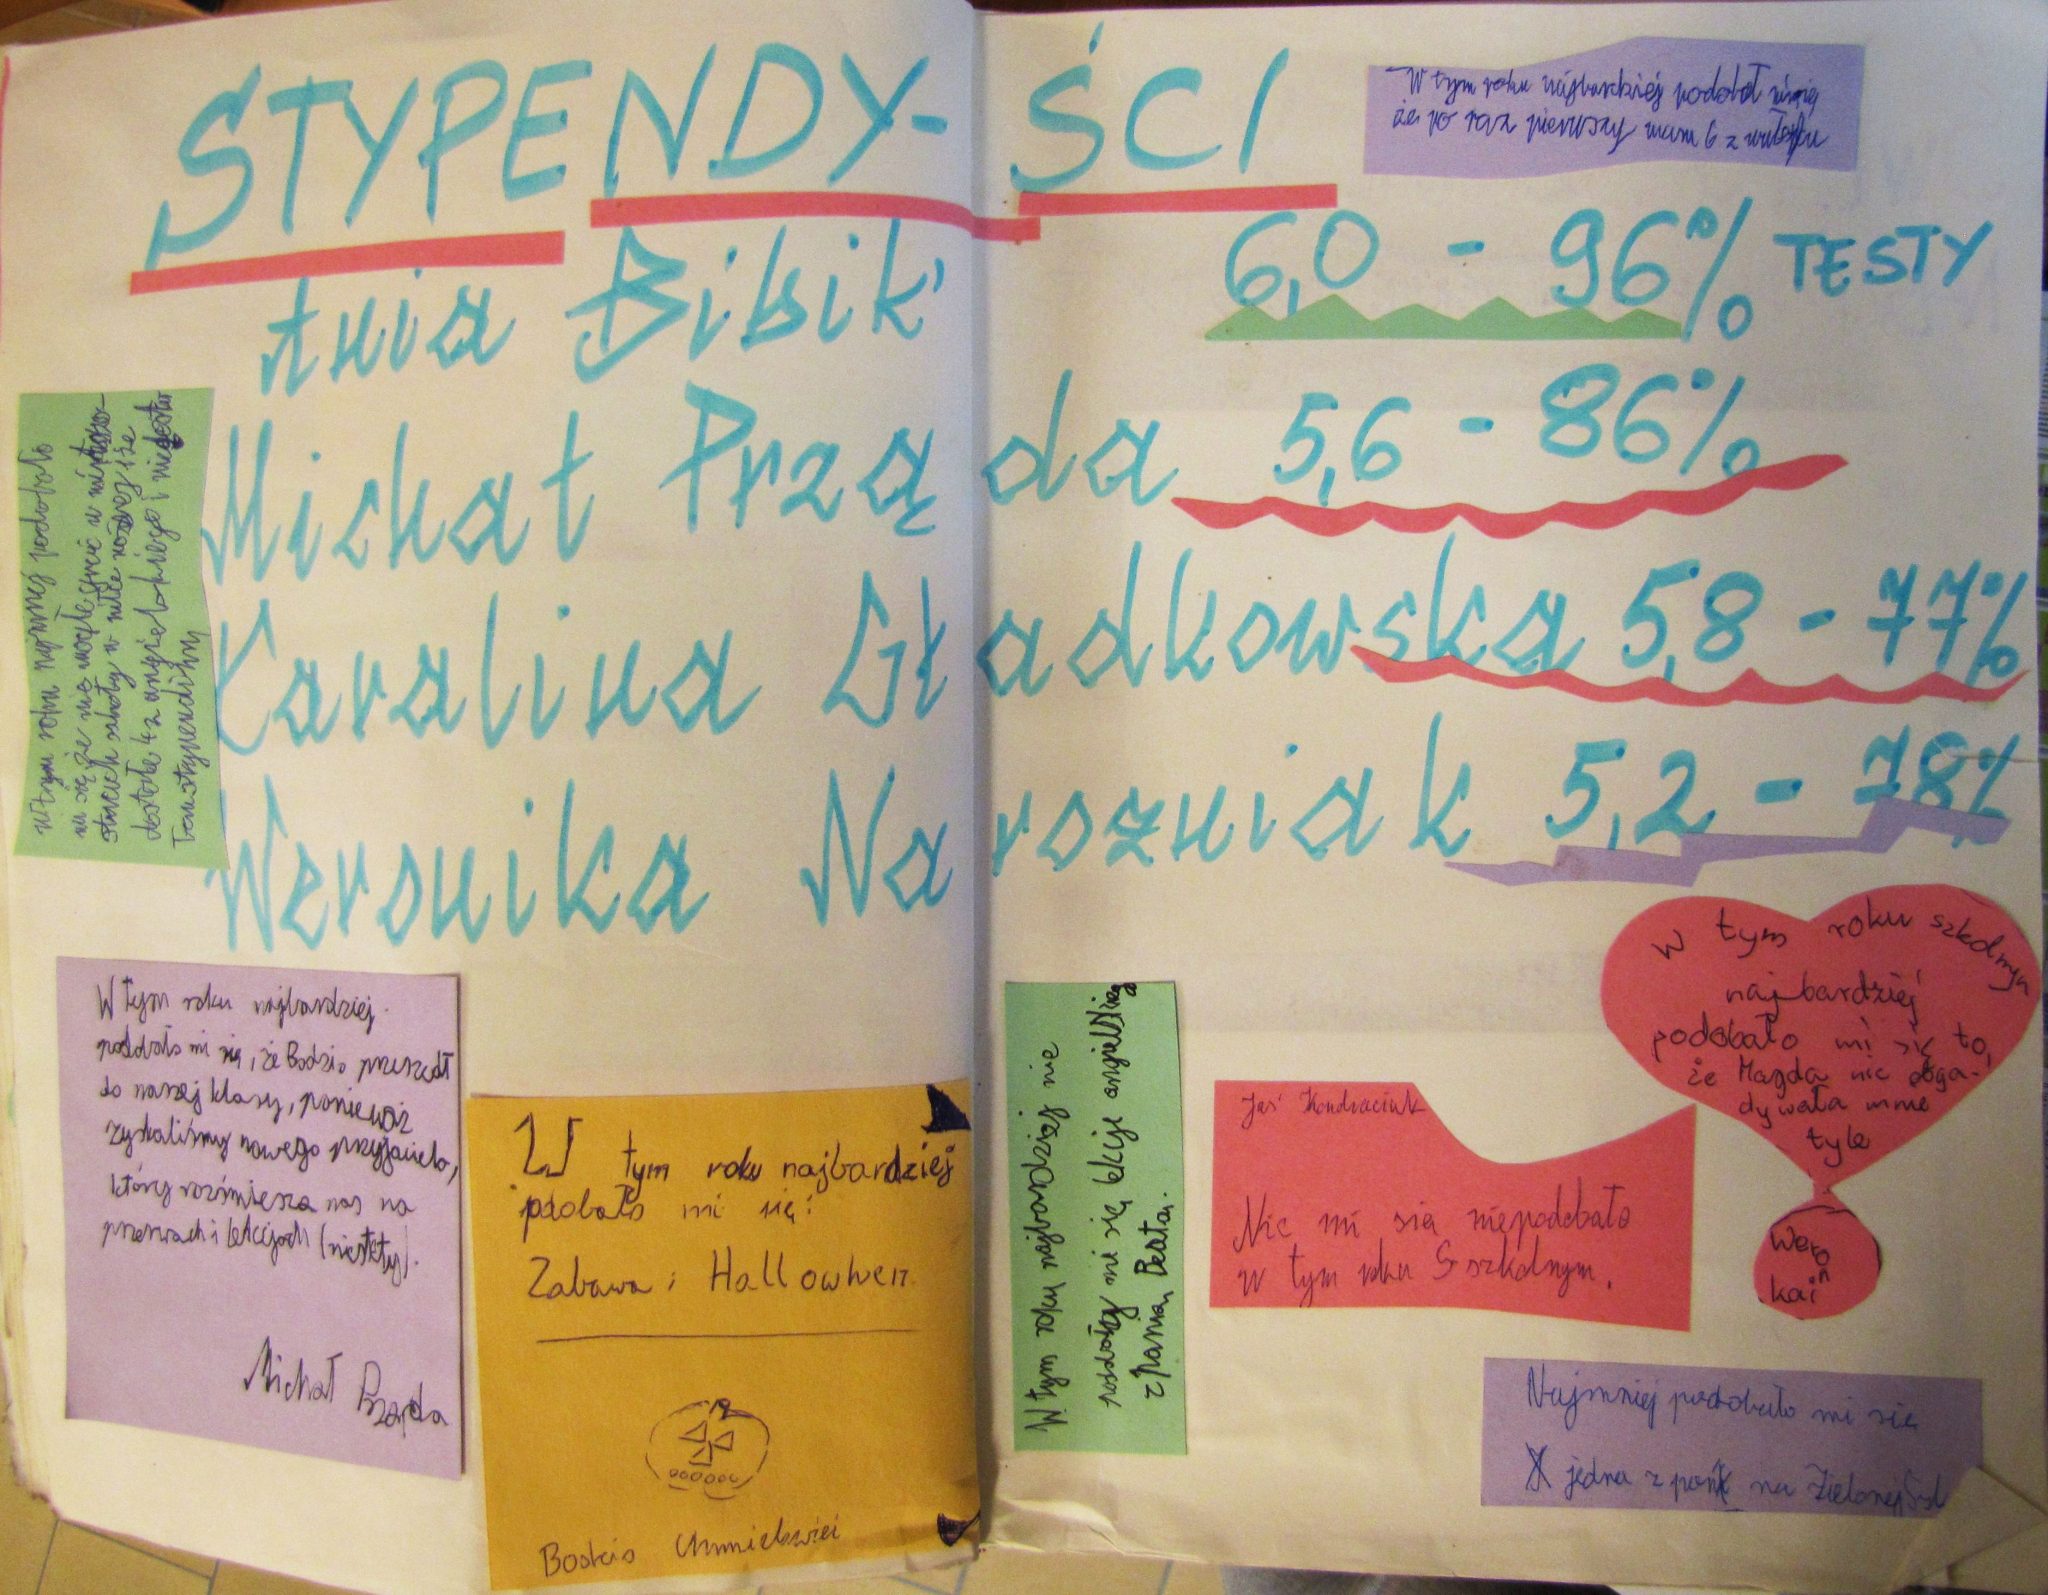 STYPENDY-ŚCI
W tym roku najbardziej podobał mi się
że po raz pierwszy mam 6 z
Ania Bibik 6,0 - 96% TESTY
Michał Prząda 5,6 - 86%
Karolina Gładkowska 5,8 - 77%
Weronika Narozniak 5,2 - 78%
W tym roku najmniej podobało
mi się że nie mogłe
szkoły w nodze i że
dostałe 4 z angielskiego i nie
stypendium
W tym roku najbardziej
podobało mi się, że Bodzio przeszedł
do naszej klasy, ponieważ
zyskaliśmy nowego przyjaciela,
który rozśmiesza nas na
przerwach i lekcjach (niestety).
Michał Prząda
W tym roku najbardziej
podobało mi się:
Zabawa i Hallowwen
W tym roku najbardziej nie
podobały mi się lekcje
z Panią Beatą.
Jaś Kondraciuk
Nic mi się niepodobało
w tym roku szkolnym.
W tym roku szkolnym
najbardziej
podobało mi się to,
że Magda nie obga-
dywała mnie
tyle
Wero
n
kai
Najmniej podobało mi się
jedna z pań na Zielonej